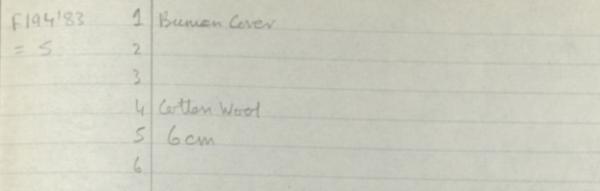 F194'83 1 Bureau Cover
= S 2
3
4 Cotton Wool
5 6cm
6